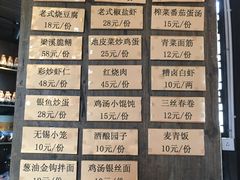 老式烧豆腐
18元/份
老式椒盐虾
28元/份
榨菜番茄蛋汤
15元/份
梁溪脆鳝
58元/份
地皮菜炒鸡蛋
25元/份
青菜面筋
12元/份
彩炒虾仁
48元/份
红烧肉
45元/份
糟卤白虾
10元/两
银鱼炒蛋
28元/份
鸡汤小馄饨
15元/份
三丝春卷
12元/份
无锡小笼
10元/份
酒酿园子
10元/份
麦青饭
10元/份
葱油金钩拌面
鸡汤银丝面